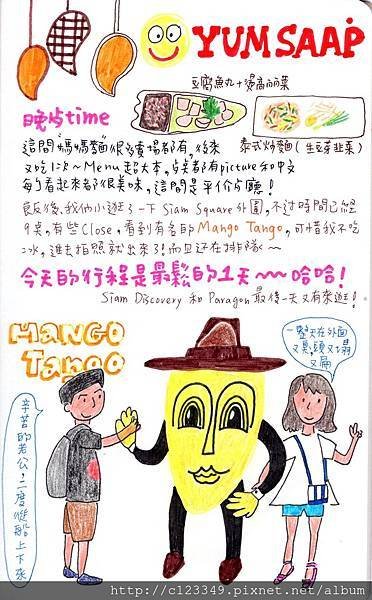 YUM SAAP
豆腐魚丸+燙高麗菜
晚店time
泰式炒麵(生豆芽韭菜)
這間"媽媽麵"很多賣場都有,後來
又吃1次~Menu超大本,每樣都有picture和中文
每1看起來都很美味,這間是平價餐廳!
飯後,我們小逛了一下Siam Square外圍,不過時間已經
9點,有些Close,看到有名的Mango Tango,可惜我不吃
冰,進去拍照就出來了!而且還在排隊~
今天的行程是最鬆的1天~~~哈哈!
Siam Discovery 和 Paragon 最後一天又有來逛!
MANGO
TANGO
一整天在外面
又臭,頭又塌
又扁
辛苦的老公,二度從船上下來
http://c123349.pixnet.net/album